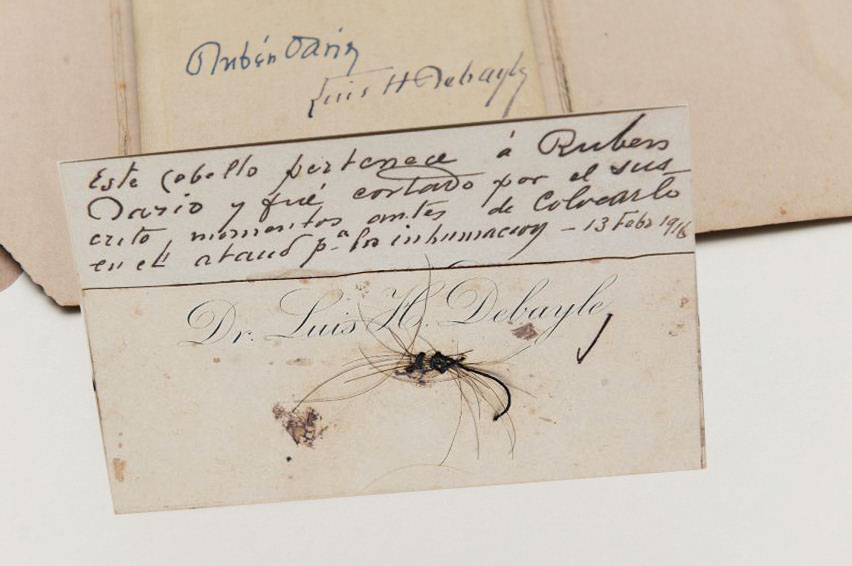 Rubén Darío
Luis H Debayle
Este cabello pertenece á Ruben
Dario y fué cortado por el sus-
crito momentos antes de colocarlo
en el ataud pª la inhumacion – 13 Febr 1916
Dr. Luis H. Debayle